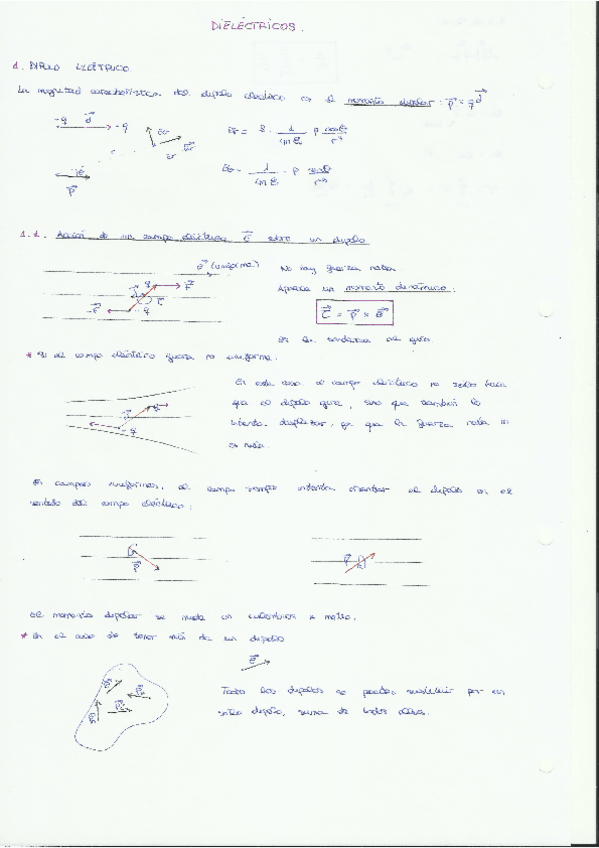 DIELÉCTRICOS.
1. DIPOLO ELÉCTRICO.
La magnitud característica del dipolo eléctrico es el momento dipolar: p = q d
-q d q
p
1.1. Acción de un campo eléctrico E sobre un dipolo
E (uniforme) No hay fuerza neta
q F Aparece un momento dinámico:
-F -q τ = p × E
* Si el campo eléctrico fuera no uniforme:
En este caso el campo eléctrico no solo hace
que el dipolo gire, sino que también lo
intenta desplazar, ya que la fuerza neta no
es nula.
-q
En campos uniformes, el campo siempre intenta orientar el dipolo en el
sentido del campo eléctrico:
p p
El momento dipolar se mide en culombios x metro.
* En el caso de tener más de un dipolo
Todos los dipolos se pueden sustituir por un
dipolo, suma de todos ellos.